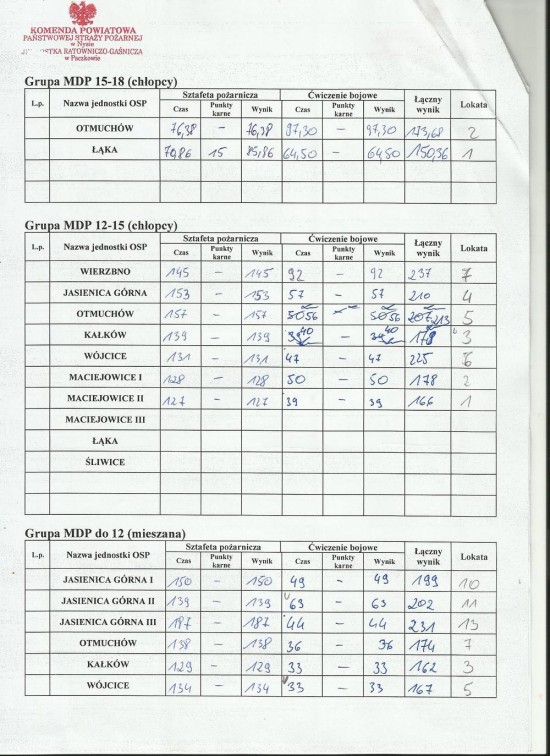 KOMENDA POWIATOWA
PAŃSTWOWEJ STRAŻY POŻARNEJ
w Nysie
RATOWNICZO-GAŚNICZA
w Paczkowie
Grupa MDP 15-18 (chłopcy)
L.p. Nazwa jednostki OSP Sztafeta pożarnicza Ćwiczenie bojowe Łączny wynik Lokata
Czas Punkty karne Wynik Czas Punkty karne Wynik
OTMUCHÓW 76,38 – 76,38 97,30 – 97,30 173,68 2
ŁĄKA 70,86 15 85,86 64,50 – 64,50 150,36 1
Grupa MDP 12-15 (chłopcy)
L.p. Nazwa jednostki OSP Sztafeta pożarnicza Ćwiczenie bojowe Łączny wynik Lokata
Czas Punkty karne Wynik Czas Punkty karne Wynik
WIERZBNO 145 – 145 92 – 92 237 7
JASIENICA GÓRNA 153 – 153 57 – 57 210 4
OTMUCHÓW 157 – 157 50 56 – 50 56 207 213 5
KAŁKÓW 139 – 139 40 – 40 3
WÓJCICE 131 – 131 47 – 47 225 6
MACIEJOWICE I 128 – 128 50 – 50 178 2
MACIEJOWICE II 127 – 127 39 – 39 166 1
MACIEJOWICE III
ŁĄKA
ŚLIWICE
Grupa MDP do 12 (mieszana)
L.p. Nazwa jednostki OSP Sztafeta pożarnicza Ćwiczenie bojowe Łączny wynik Lokata
Czas Punkty karne Wynik Czas Punkty karne Wynik
JASIENICA GÓRNA I 150 – 150 49 – 49 199 10
JASIENICA GÓRNA II 139 – 139 63 – 63 202 11
JASIENICA GÓRNA III 187 – 187 44 – 44 231 13
OTMUCHÓW 138 – 138 36 – 36 174 7
KAŁKÓW 129 – 129 33 – 33 162 3
WÓJCICE 134 – 134 33 – 33 167 5